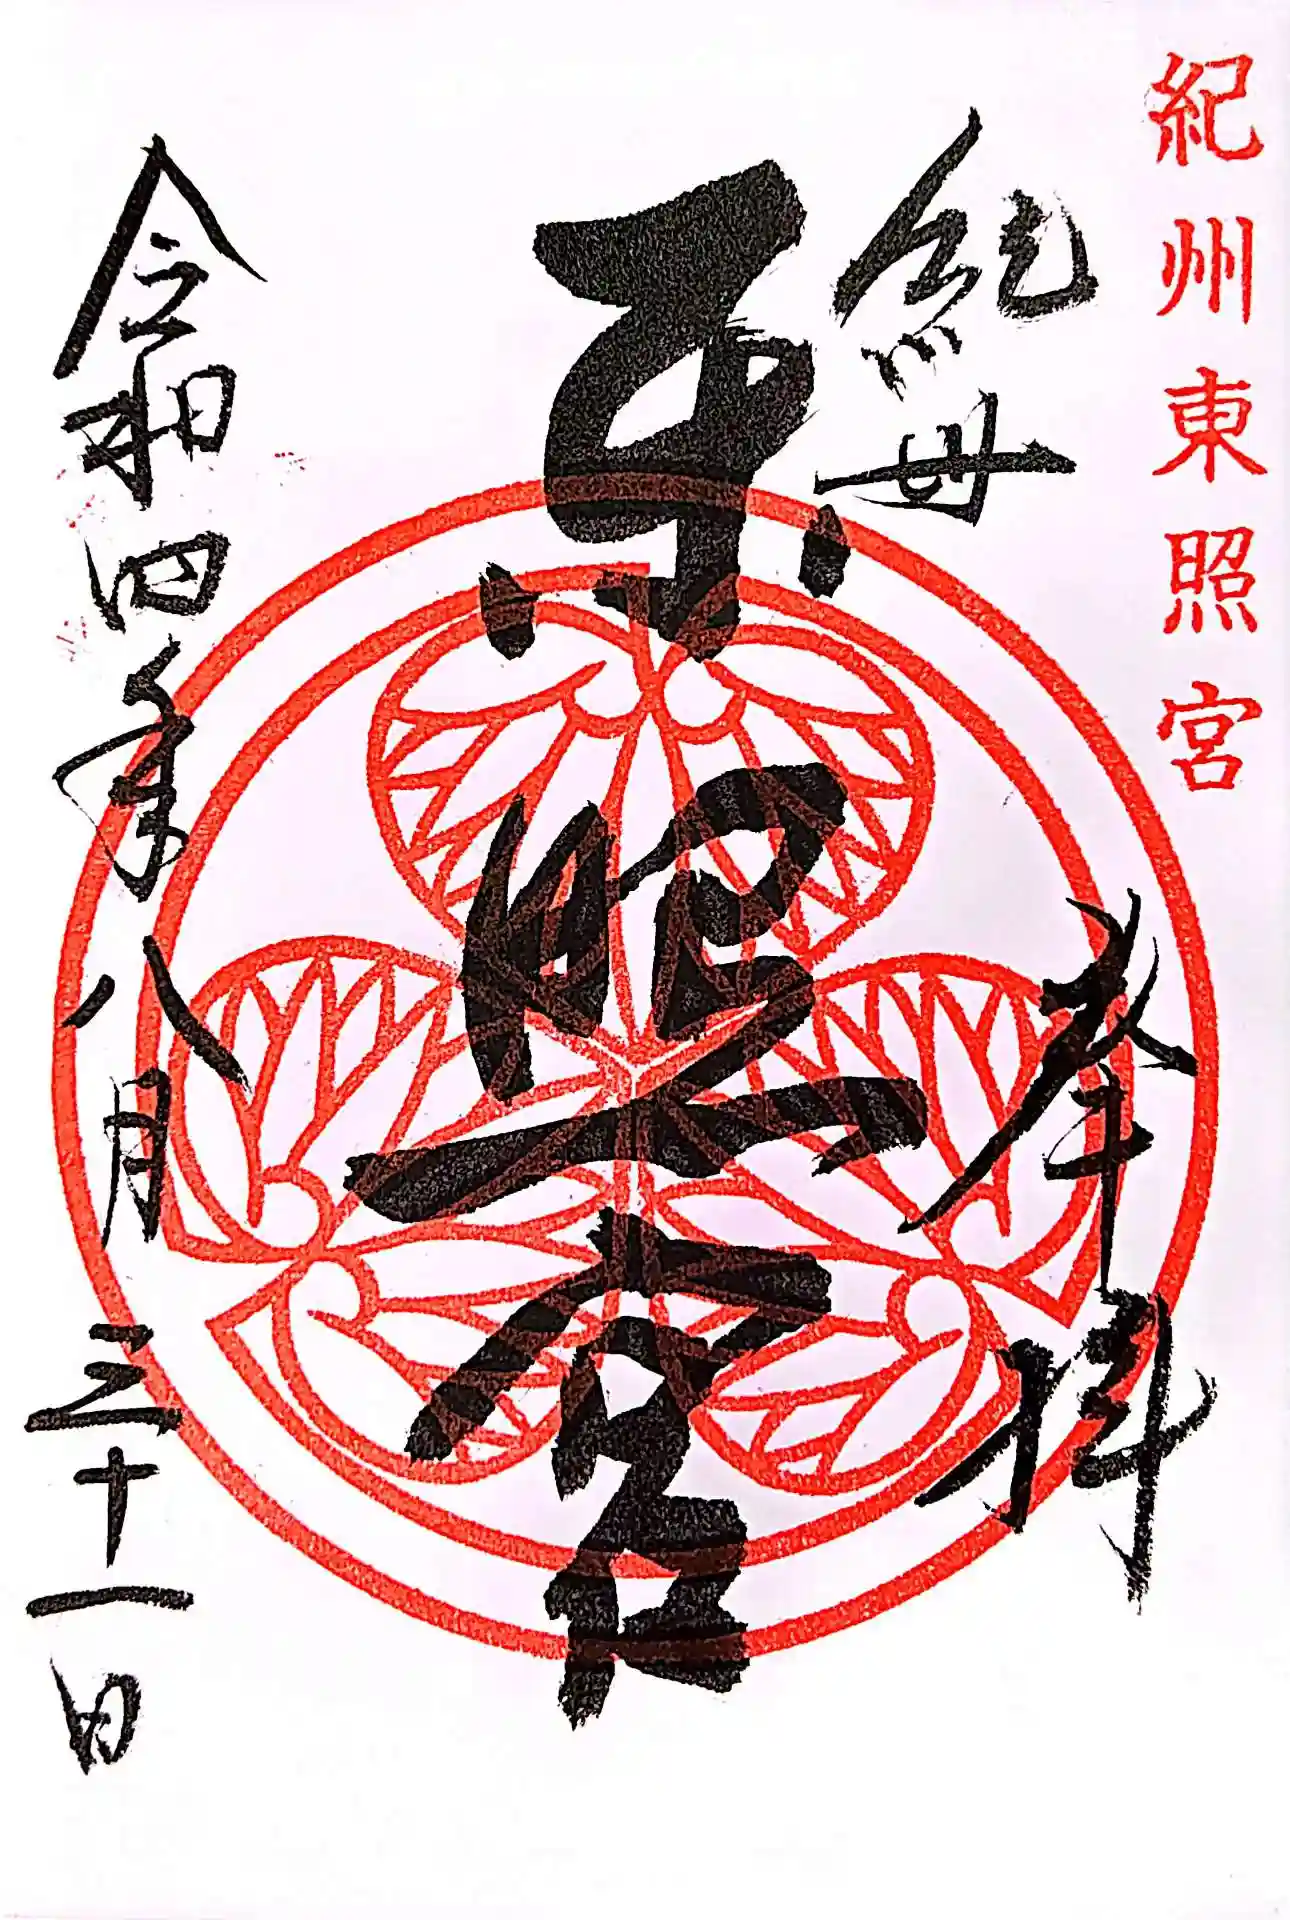 紀州東照宮
奉拝
紀州
東照宮
令和四年八月三十一日